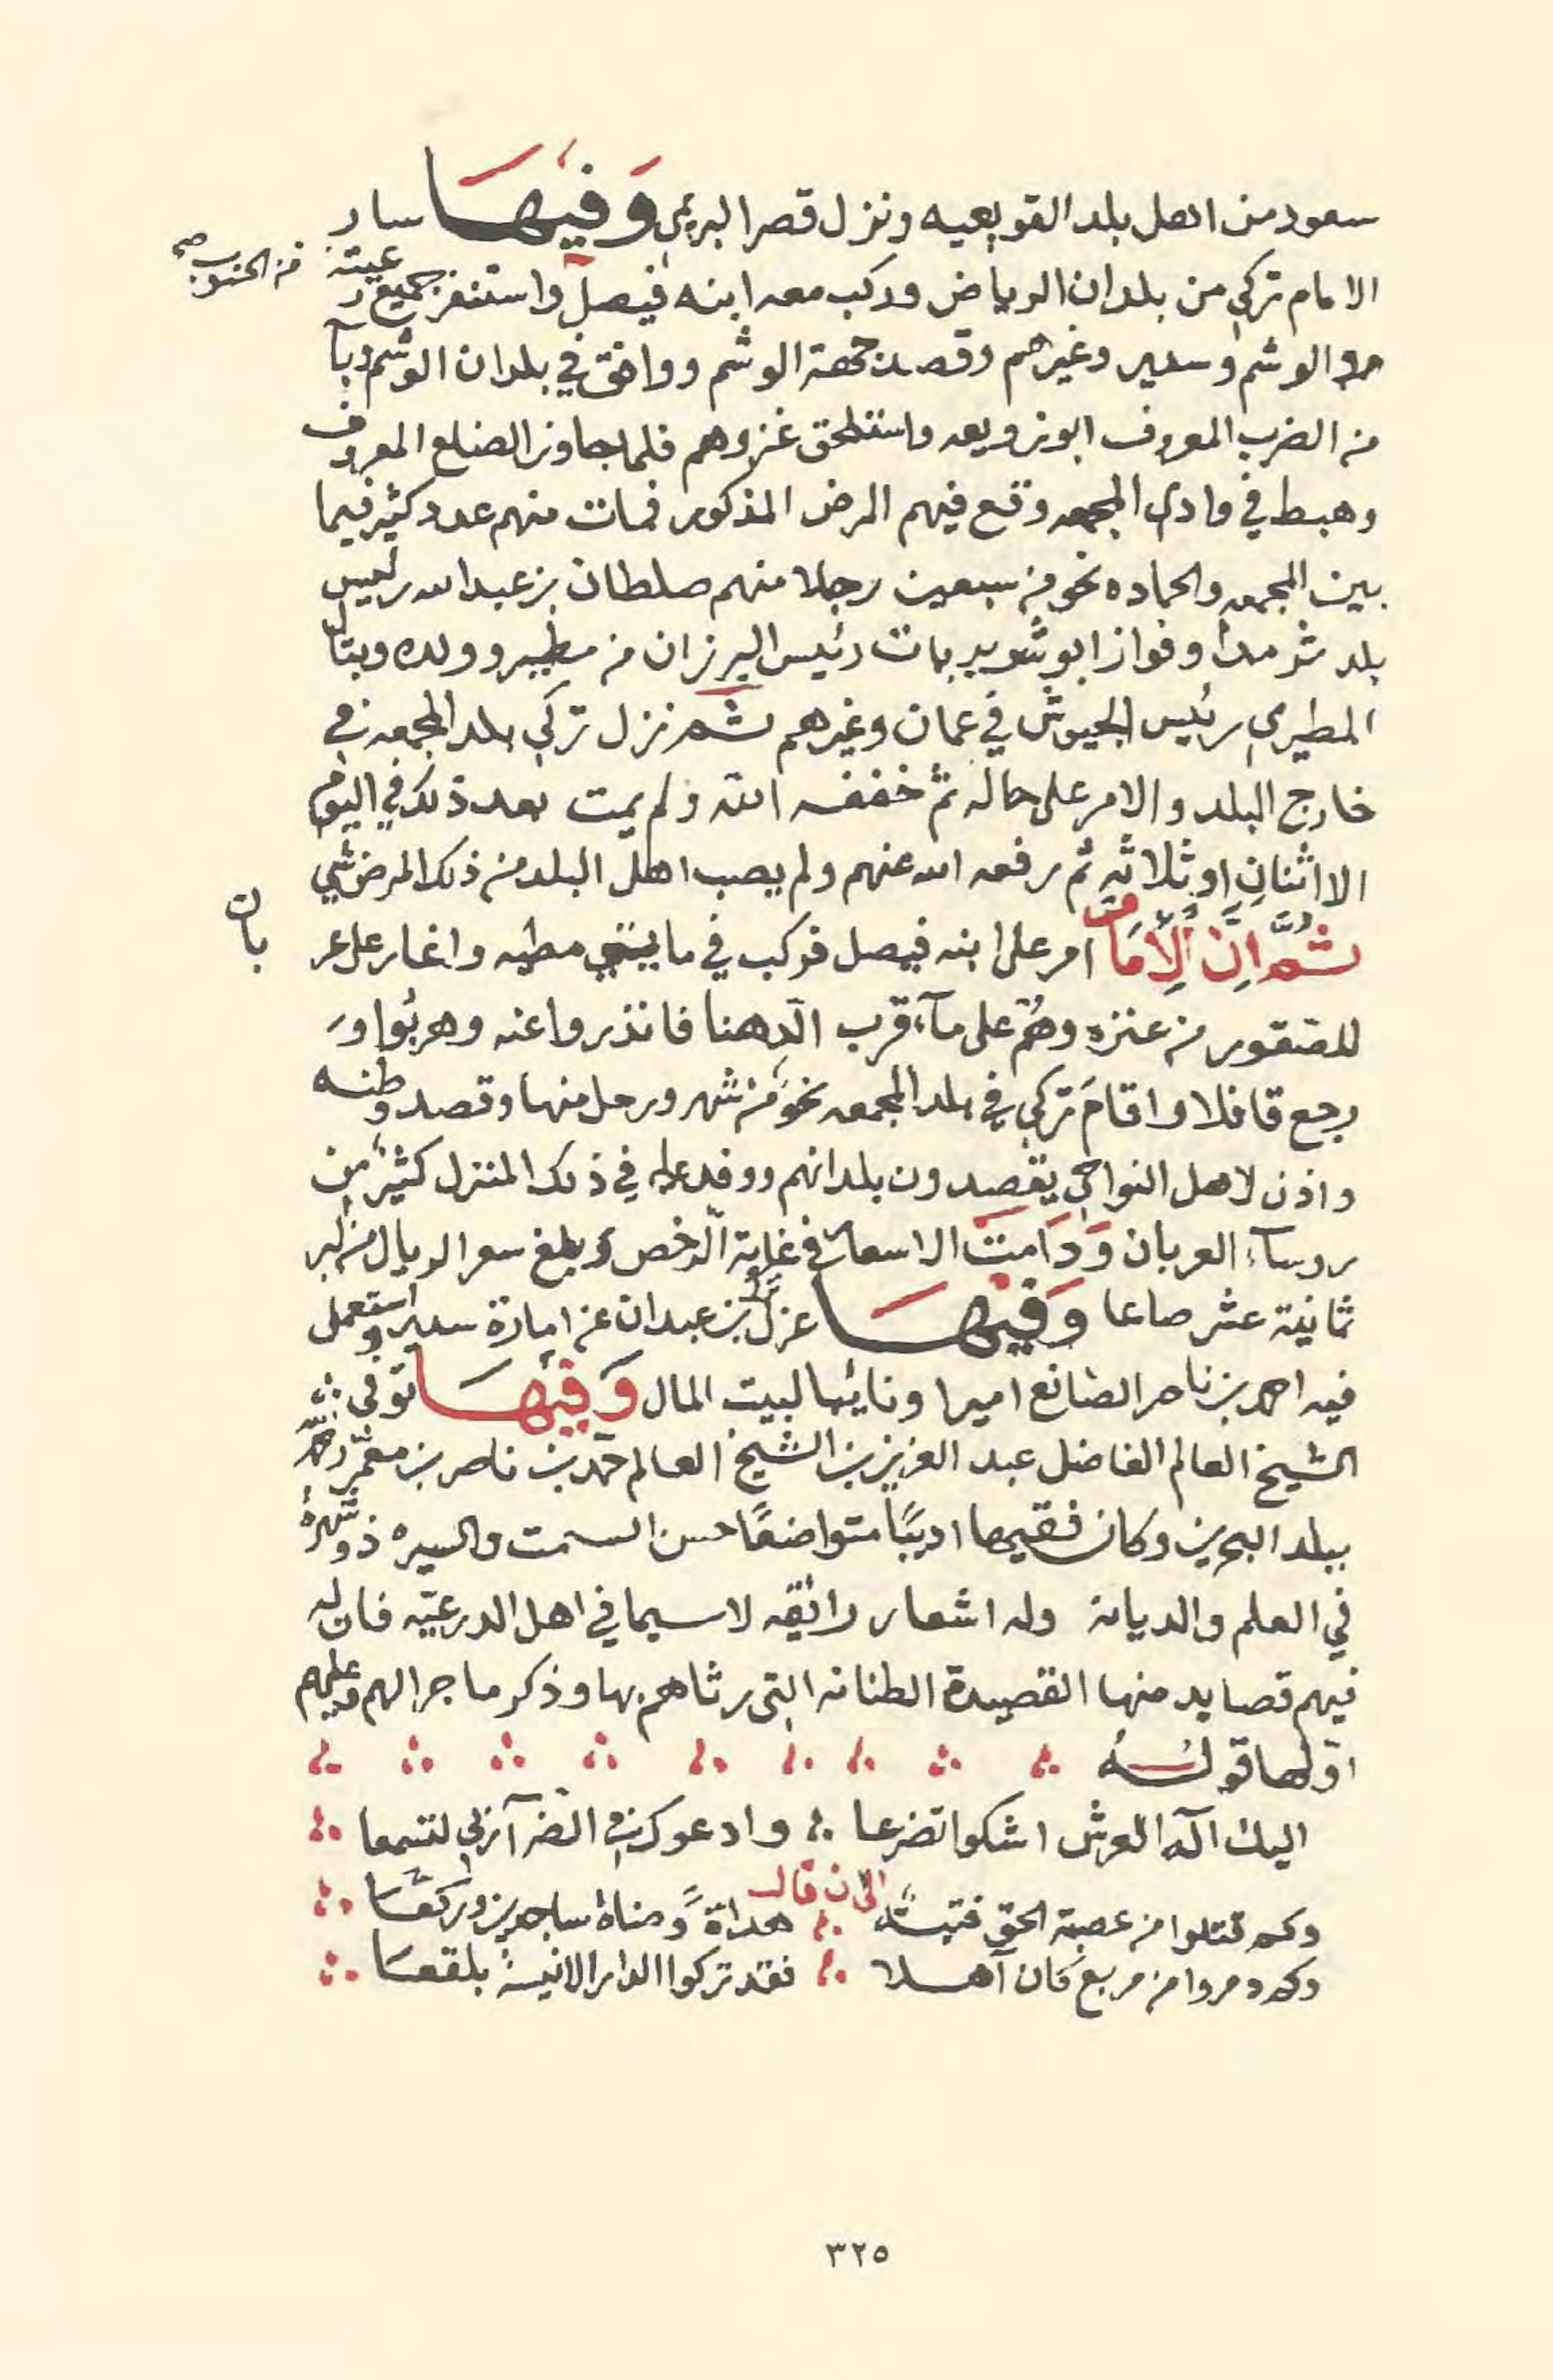 سعود من اهل بلد القويعيه ونزل قصر البريمي وَفيهَا سار
الامام تركي من بلدان الرياض وركب معه ابنه فيصل واستنفر جميع رعيته من الجنوب صح
والوشم وسدير وغيرهم وقصد جهة الوشم ووافق في بلدان الوشم وبآ
من الضرب المعروف ابو زويعه واستلحق غزوهم فلما جاوز الضلع المعروف
وهبط في وادي المجمعه وقع فيهم المرض المذكور فمات منهم عدد كثير فيما
بين المجمعه والحماده نحو من سبعين رجلا منهم صلطان بن عبدالله رئيس
بلد ثرمدا وفواز ابو شويربات رئيس البرزان من مطير وولده وبتال
المطيري رئيس الجيوش في عمان وغيرهم ثم نزل تركي بلد المجمعه في
خارج البلد والامر على حاله ثم خففه الله ولم يمت بعد ذلك في اليوم
الا اثنانِ او ثلاثه ثم رفعه الله عنهم ولم يصب اهل البلد من ذلك المرض شي
ثُمَّ اِنَّ اَلِأمَام امر على ابنه فيصل فركب في مايتي مطيه واغار على عربان
للصقور من عنزه وهُم على مآء قرب الدهنا فانذروا عنه وهربُوا وَ
رجع قافلا واقامَ تركي في بلد المجمعه نحوَ من شهر ورحل منها وقصد وطنه
واذن لاهل النواحي يقصدون بلدانهم ووفد عليه في ذلك المنزل كثير من
روسآء العربان وَدَامت الاسعار في غاية الرخص وبلغ سعر الريال من البر
ثمانية عشر صاعا وَفيهَا عزل بن عبدان عن امارة سدير واستعمل
فيه احمد بن ناصر الصانع اميرا ونايبًا لبيت المال وَفيهَا توفي
الشيخ العالم الفاضل عبد العزيز بن الشيخ العالم حمد بن ناصر بن معمر رحمه الله
ببلد البحرين وكان فقيها اديبًا متواضعًا حسن السمت والسيره ذو شهرة
في العلم والديانة وله اشعار رائقه لا سيما في اهل الدرعيه فان له
فيهم قصايد منها القصيدة الطنانه التي رثاهم بها وذكر ما جرا لهم وعليهم
اوّلها قولـهُ
اليك اله العرش اشكوا تضرعا وادعوك في الضرآ ربي لتسمعا
الى ان قال
وكم قتلوا من عصبة الحق فتيةً هداةً وضاة ساجدين وركعَا
وكم دمروا من مربع كان آهلا فقد تركوا الدار الانيسة بلقعَا
٣٢٥